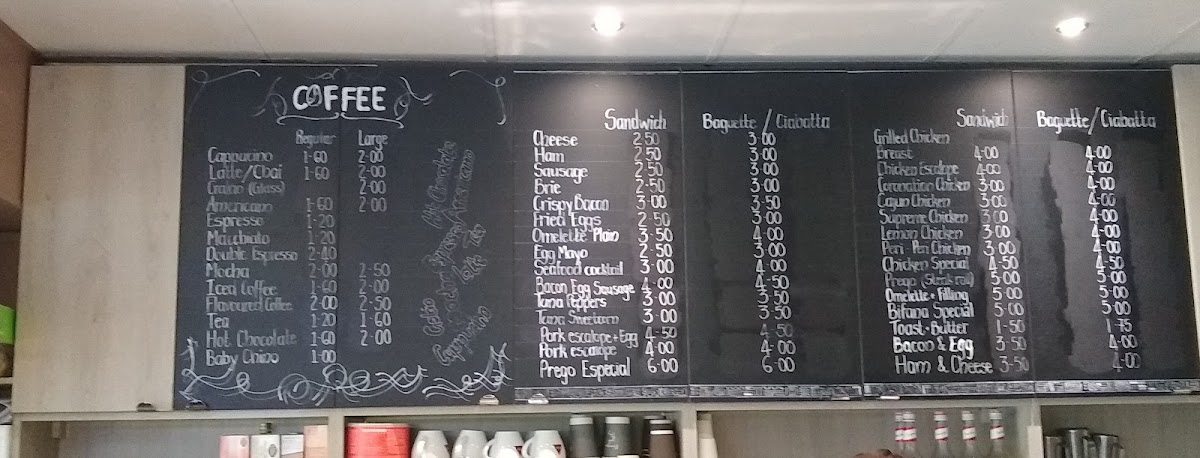 COFFEE
Regular Large
Cappucino 1-60 2-00
Latte/Chai 1-60 2-00
(Glass) 2-00
Americano 1-60 2-00
Espresso 1-20
Macchiato 1-20
Double Espresso 2-40
Mocha 2-00 2-50
Iced Coffee 1-60 2-00
Flavoured Coffee 2-00 2-50
Tea 1-20 1-60
Hot Chocolate 1-60 2-00
Baby Chino 1-00
Sandwich Baguette/Ciabatta
Cheese 2-50 3-00
Ham 2-50 3-00
Sausage 2-50 3-00
Brie 2-50 3-00
Crispy Bacon 3-00 3-50
Fried Eggs 2-50 3-00
Omelette Plain 3-50 4-00
Egg Mayo 2-50 3-00
Seafood cocktail 3-00 4-00
Bacon Egg Sausage 4-00 4-50
Tuna Peppers 3-00 3-50
Tuna Sweetcorn 3-00 3-50
Pork escalope+Egg 4-50 4-50
Pork escalope 4-00 4-00
Prego Especial 6-00 6-00
Sandwich Baguette/Ciabatta
Grilled Chicken
Breast 4-00 4-00
Chicken Escalope 4-00 4-00
Coronation Chicken 3-00 4-00
Cajun Chicken 3-00 4-00
Supreme Chicken 3-00 4-00
Lemon Chicken 3-00 4-00
Peri-Peri Chicken 3-00 4-00
Chicken Special 4-50 4-50
Prego (Steak roll) 5-00 5-00
Omelette+Filling 5-00 5-00
Bifana Special 5-00 5-00
Toast+Butter 1-50 1-75
Bacon & Egg 3-50 4-00
Ham & Cheese 3-50 4-00